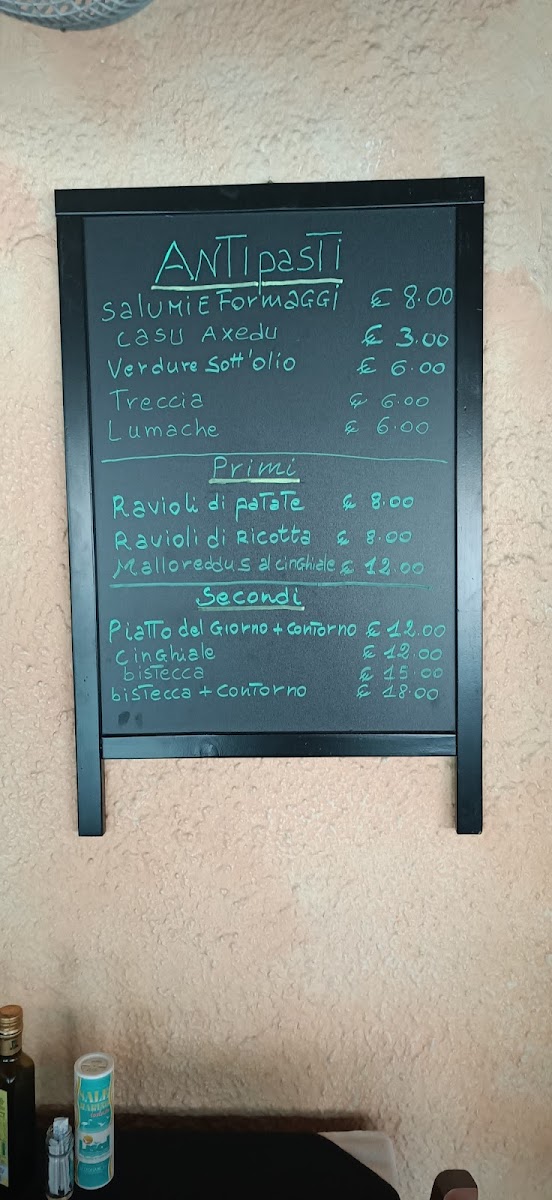 ANTipasTi
SaluMi E ForMaGGi € 8.00
Casu Axedu € 3.00
Verdure Sott'olio € 6.00
Treccia € 6.00
Lumache € 6.00
Primi
Ravioli di paTaTe € 8.00
Ravioli di Ricotta € 8.00
Malloreddus al cinGhiale € 12.00
Secondi
PiaTTo del Giorno + conTorno € 12.00
CinGhiale € 12.00
bisTecca € 15.00
bisTecca + conTorno € 18.00
SALE